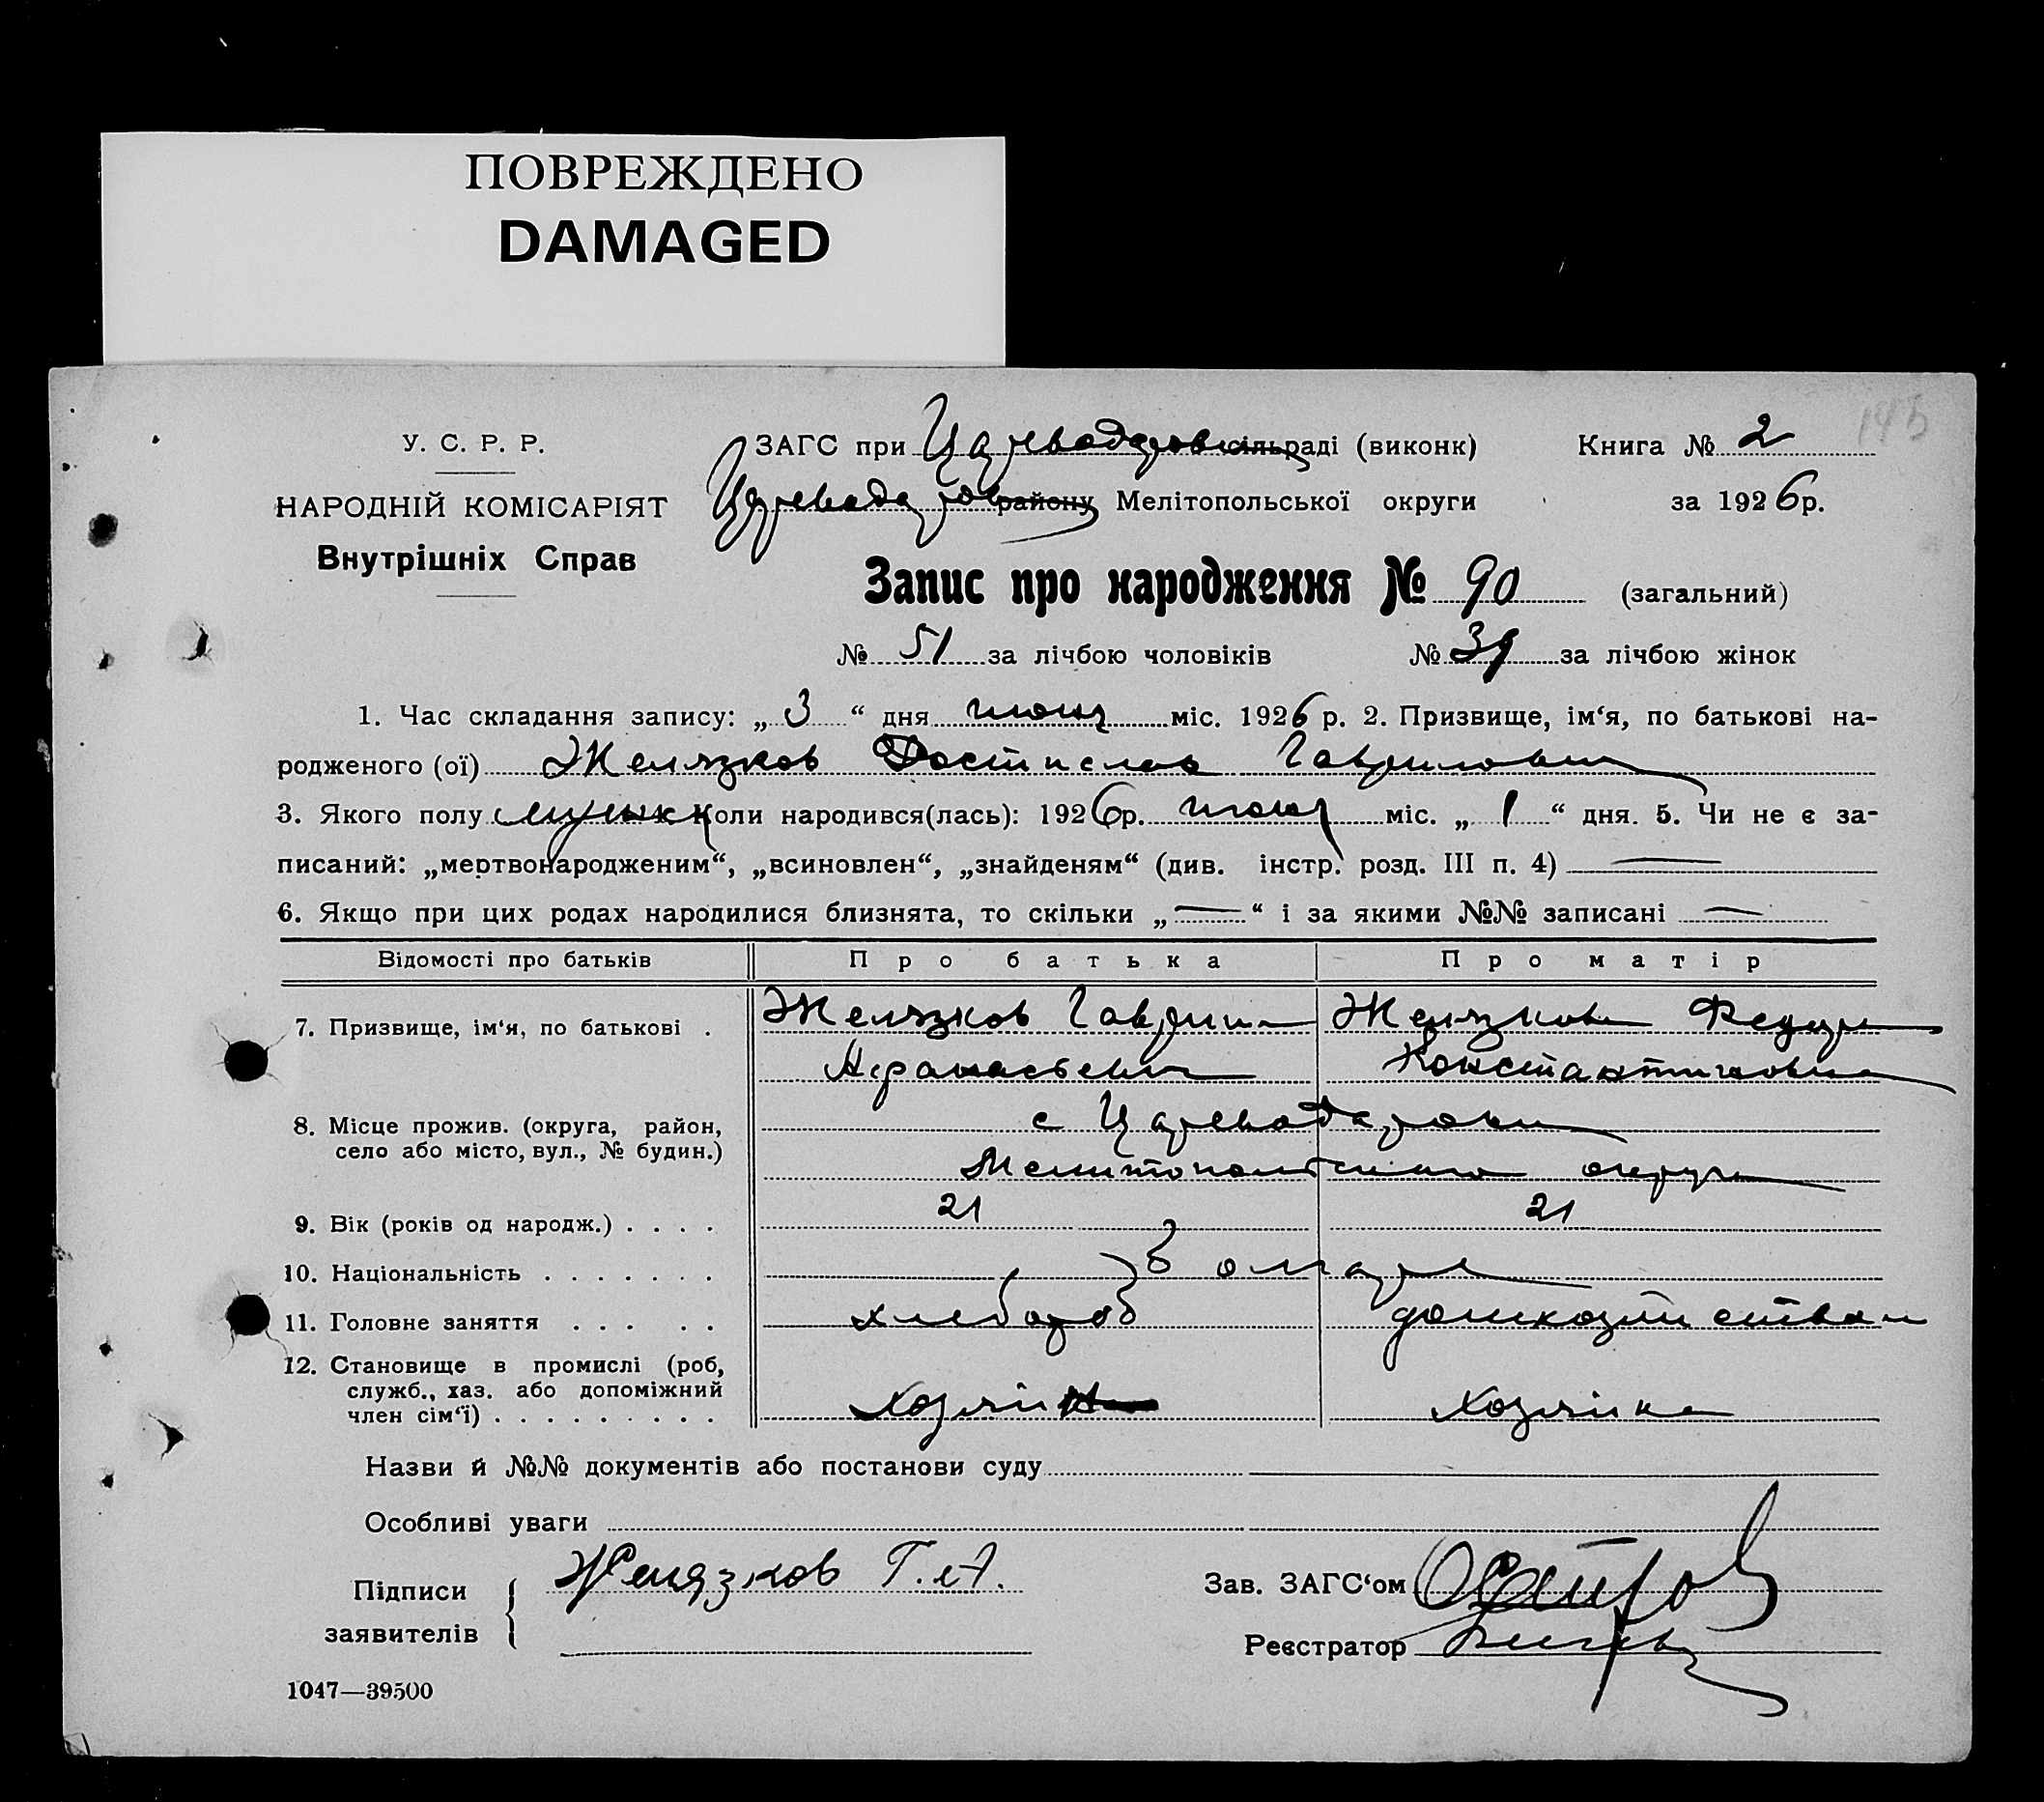 ПОВРЕЖДЕНО
DAMAGED
145
У. С. Р. Р.
НАРОДНІЙ КОМІСАРІЯТ
Внутрішніх Справ
ЗАГС при Царевадаровс сільраді (виконк)
Царевадаров району Мелітопольської округи
Книга № 2
за 1926р.
Запис про народження № 90 (загальний)
№ 51 за лічбою чоловіків № 39 за лічбою жінок
1. Час складання запису: „ 3 “ дня июня міс. 1926 р. 2. Призвище, ім‘я, по батькові на-
родженого (ої) Желязков Ростислав Гаврилович
3. Якого полу мужск Коли народився(лась): 1926р. июня міс. „ 1 “ дня. 5. Чи не є за-
писаний: „мертвонародженим“, „всиновлен“, „знайденям“ (див. інстр. розд. III п. 4) —
6. Якщо при цих родах народилися близнята, то скільки „ — “ і за якими №№ записані —
Відомості про батьків Про батька Про матір
7. Призвище, ім‘я, по батькові . Желязков Гаврил Желязкова Федора
Афанасьевич Константиновна
8. Місце прожив. (округа, район, с Царевадаровка
село або місто, вул., № будин.) Мелитопольского округа
9. Вік (років од народж.) . . . . 21 21
10. Національність . . . . . . . Болгаре
11. Головне заняття . . . . . хлебороб домхозяйством
12. Становище в промислі (роб,
служб., хаз. або допоміжний
член сім‘ї) . . . . . . . . . хозяин хозяйка
Назви й №№ документів або постанови суду
Особливі уваги
Підписи
заявителів
Желязков Г. А.
Зав. ЗАГС‘ом
Реєстратор
1047—39500